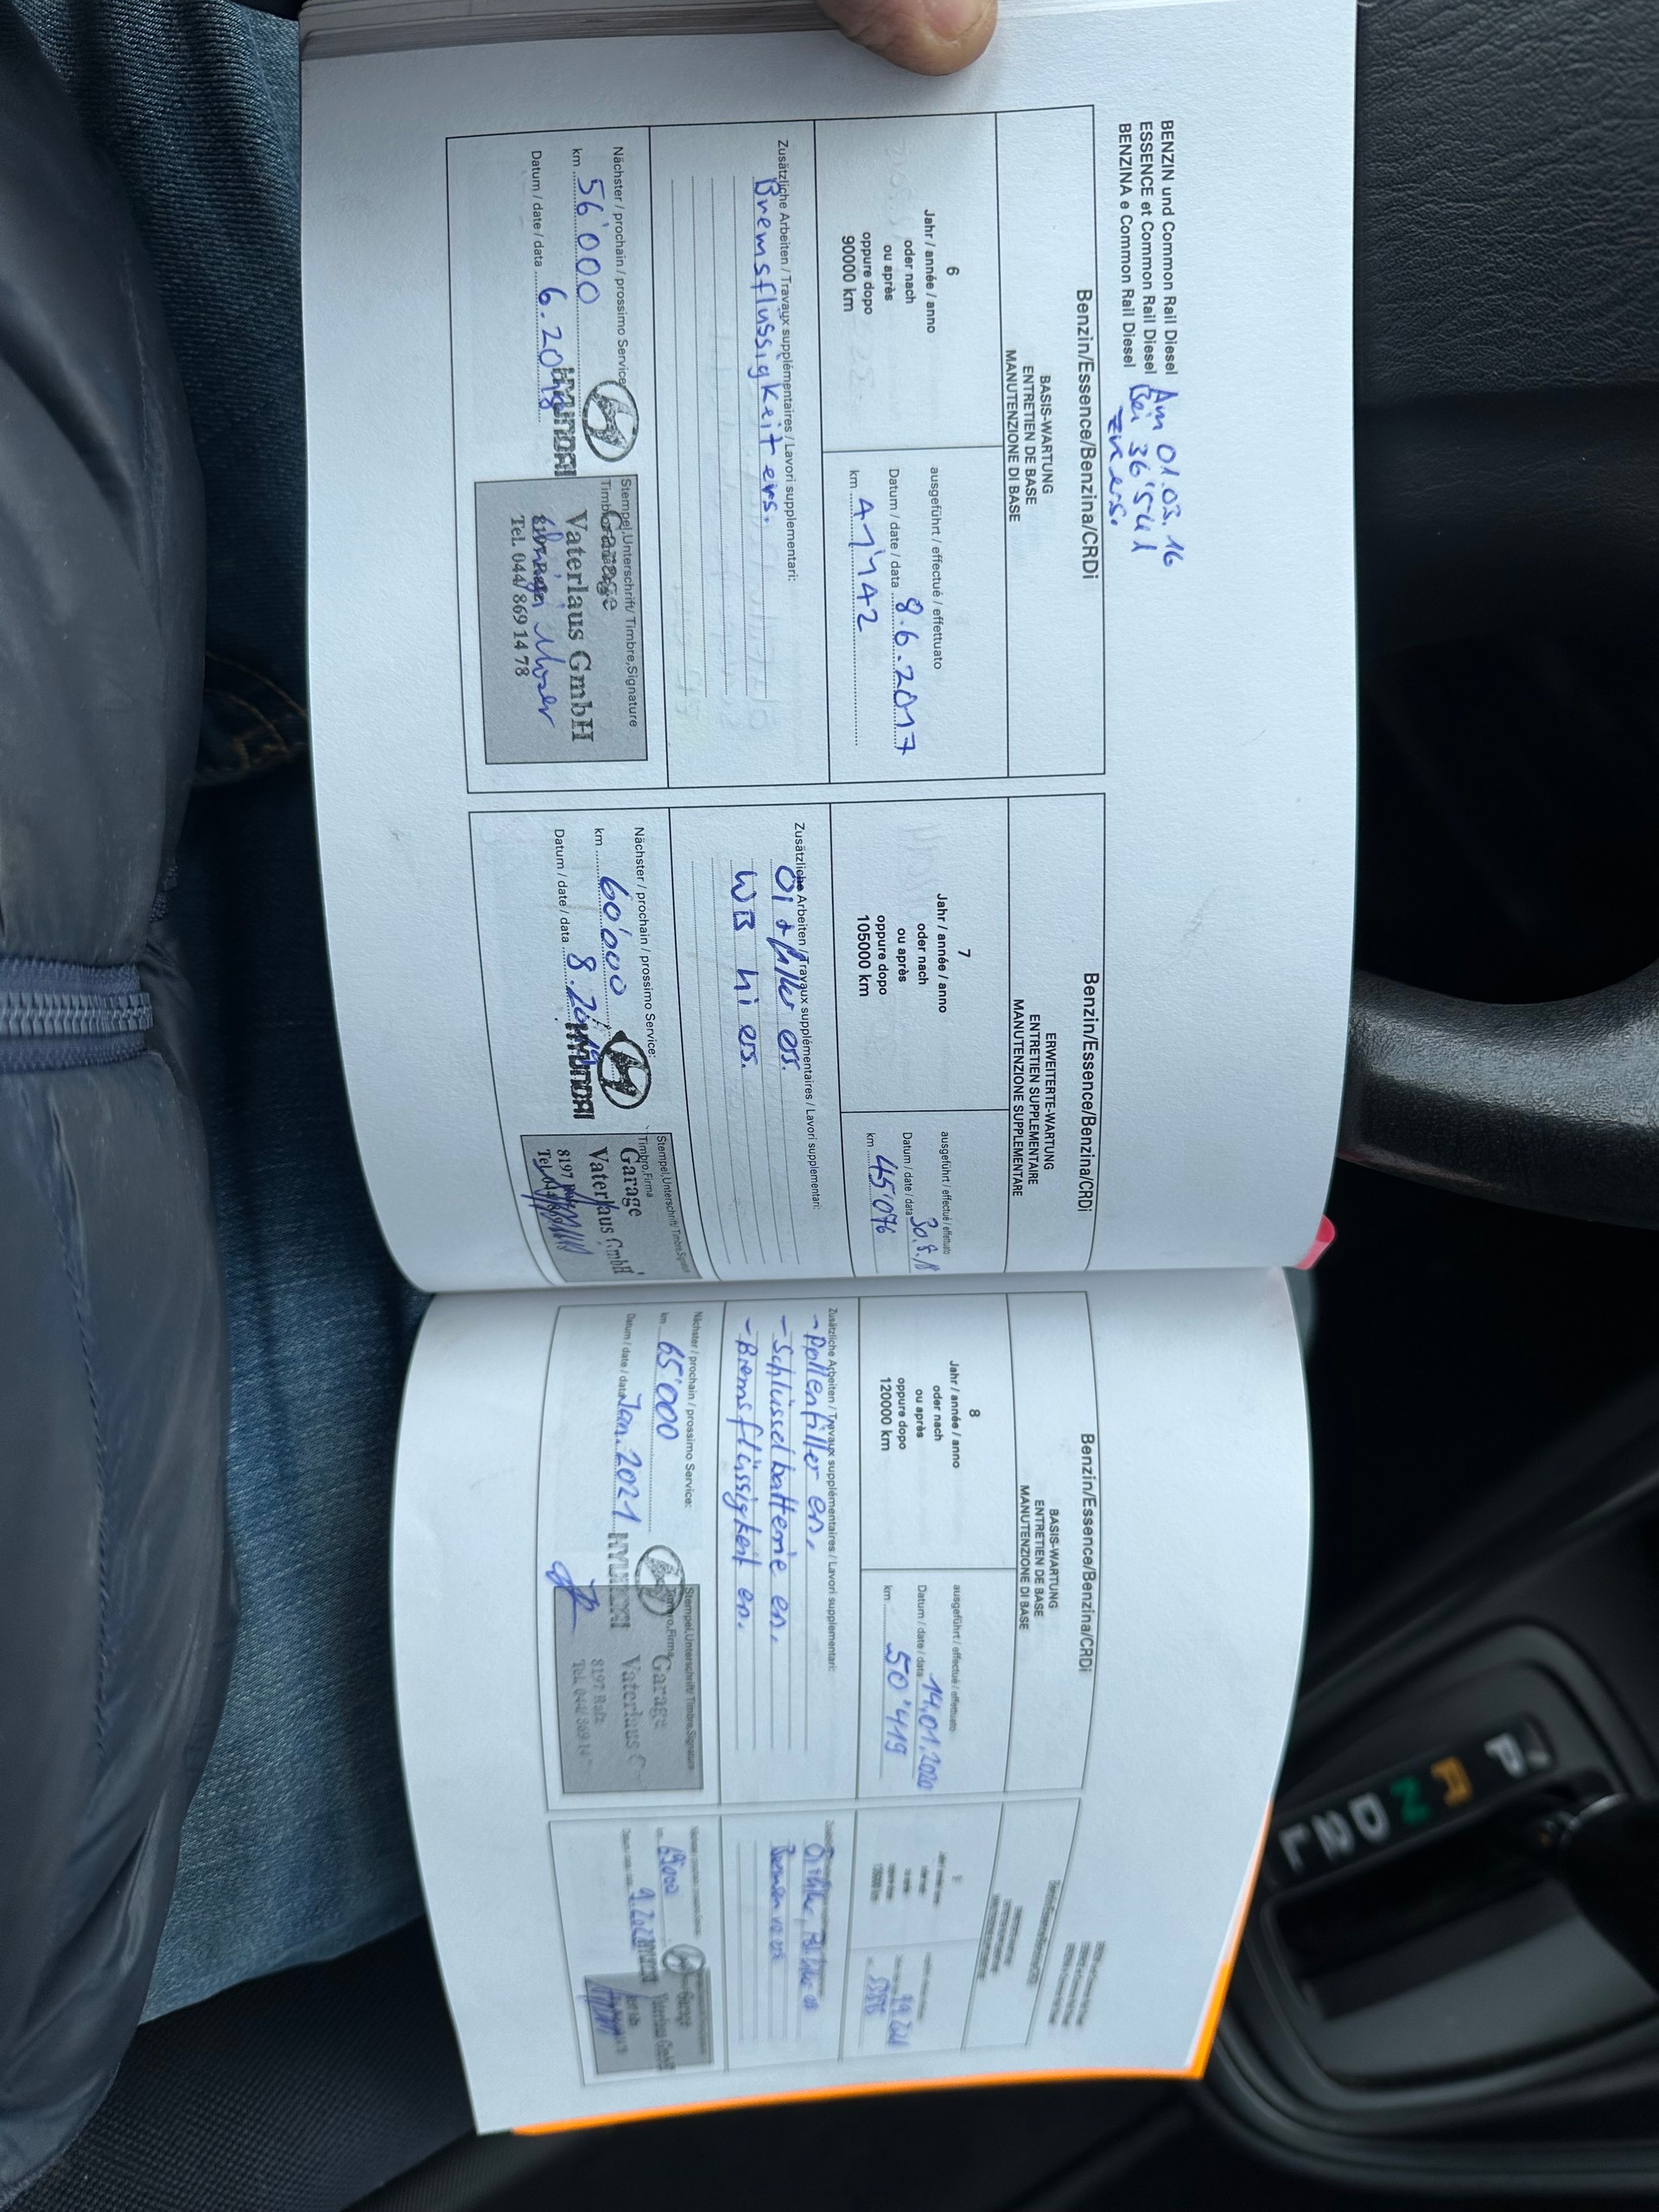 BENZIN und Common Rail Diesel
ESSENCE et Common Rail Diesel
BENZINA e Common Rail Diesel
Am 01.03.16
Bei 36'541
ZK ers.
Benzin/Essence/Benzina/CRDi
BASIS-WARTUNG
ENTRETIEN DE BASE
MANUTENZIONE DI BASE
6
Jahr / année / anno
oder nach
ou après
oppure dopo
90000 km
ausgeführt / effectué / effettuato
Datum / date / data 8.6.2017
km 41'142
Zusätzliche Arbeiten / Travaux supplémentaires / Lavori supplementari:
Bremsflussigkeit ers.
Nächster / prochain / prossimo Service:
km 56'000
Datum / date / data 6.2018
HYUNDAI
Stempel,Unterschrift/ Timbre,Signature
Garage
Vaterlaus GmbH
Tel. 044/ 869 14 78
Benzin/Essence/Benzina/CRDi
ERWEITERTE-WARTUNG
ENTRETIEN SUPPLEMENTAIRE
MANUTENZIONE SUPPLEMENTARE
7
Jahr / année / anno
oder nach
ou après
oppure dopo
105000 km
ausgeführt / effectué / effettuato
Datum / date / data 30.8.18
km 45'096
Zusätzliche Arbeiten / Travaux supplémentaires / Lavori supplementari:
Öl + filter ers.
WB hi ers.
Nächster / prochain / prossimo Service:
km 60'000
Datum / date / data 8.2019
HYUNDAI
Stempel,Unterschrift/ Timbre,Signature
Timbro,Firma
Garage
Vaterlaus GmbH
8197
Tel.
Benzin/Essence/Benzina/CRDi
BASIS-WARTUNG
ENTRETIEN DE BASE
MANUTENZIONE DI BASE
8
Jahr / année / anno
oder nach
ou après
oppure dopo
120000 km
ausgeführt / effectué / effettuato
Datum / date / data 14.01.2020
km 50'419
Zusätzliche Arbeiten / Travaux supplémentaires / Lavori supplementari:
- Pollenfilter ers.
- Schlüsselbatterie ers.
- Bremsflüssigkeit ers.
Nächster / prochain / prossimo Service:
km 65'000
Datum / date / data Jan. 2021
HYUNDAI
Stempel,Unterschrift/ Timbre,Signature
Timbro,Firma
Garage
Vaterlaus G
8197 Rafz
Tel. 044/ 869 14
Benzin/Essence/Benzina/CRDi
135000 km
Garage
Vaterlaus GmbH
P
R
N
D
2
L